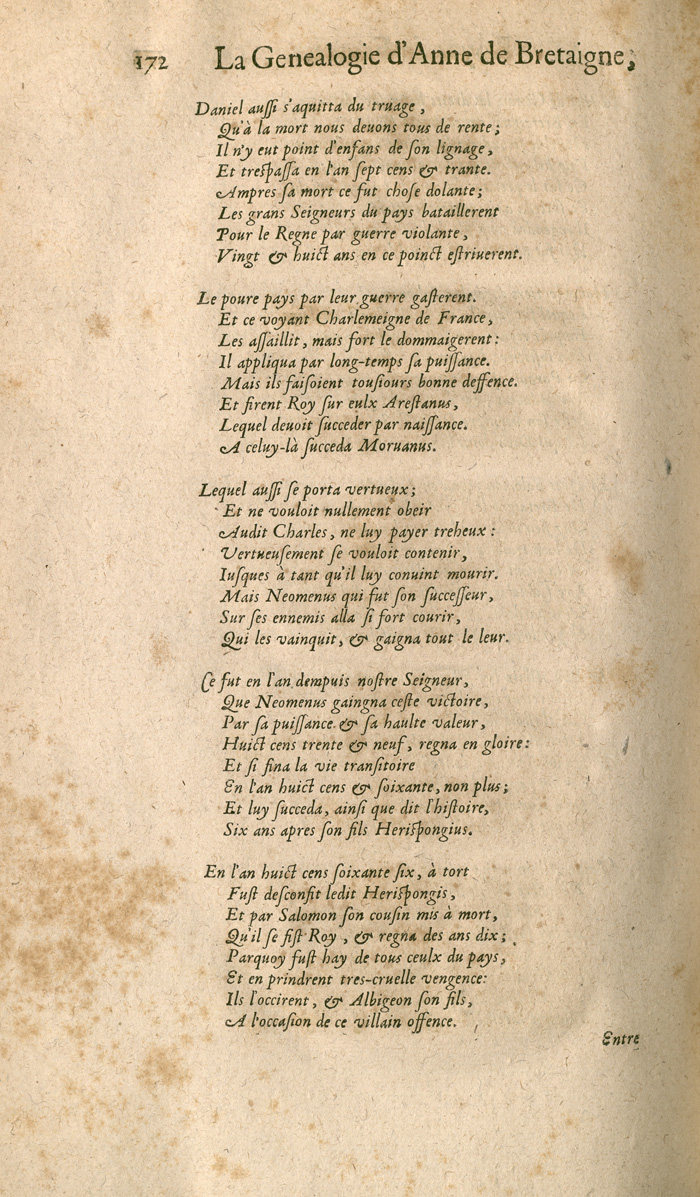 172 La Genealogie d'Anne de Bretaigne,
Daniel auſſi s'aquitta du truage,
Qu'à la mort nous deuons tous de rente;
Il n'y eut point d'enfans de ſon lignage,
Et treſpaſſa en l'an ſept cens & trante.
Ampres ſa mort ce fut choſe dolante;
Les grans Seigneurs du pays bataillerent
Pour le Regne par guerre violante,
Vingt & huict ans en ce poinct eſtriuerent.
Le poure pays par leur guerre gaſterent.
Et ce voyant Charlemeigne de France,
Les aſſaillit, mais fort le dommaigerent:
Il appliqua par long-temps ſa puiſſance.
Mais ils faiſoient touſiours bonne deffence.
Et firent Roy ſur eulx Areſtanus,
Lequel deuoit ſucceder par naiſſance.
A celuy-là ſucceda Moruanus.
Lequel auſſi ſe porta vertueux;
Et ne vouloit nullement obeir
Audit Charles, ne luy payer treheux:
Vertueuſement ſe vouloit contenir,
Iuſques à tant qu'il luy conuint mourir.
Mais Neomenus qui fut ſon ſucceſſeur,
Sur ſes ennemis alla ſi fort courir,
Qui les vainquit, & gaigna tout le leur.
Ce fut en l'an dempuis noſtre Seigneur,
Que Neomenus gaingna ceſte victoire,
Par ſa puiſſance & ſa haulte valeur,
Huict cens trente & neuf, regna en gloire:
Et ſi fina la vie tranſitoire
En l'an huict cens & ſoixante, non plus;
Et luy ſucceda, ainſi que dit l'hiſtoire,
Six ans apres ſon fils Heriſpongius.
En l'an huict cens ſoixante ſix, à tort
Fuſt deſconfit ledit Heriſpongis,
Et par Salomon ſon couſin mis à mort,
Qu'il ſe fiſt Roy, & regna des ans dix;
Parquoy fuſt hay de tous ceulx du pays,
Et en prindrent tres-cruelle vengence:
Ils l'occirent, & Albigeon ſon fils,
A l'occaſion de ce villain offence.
Entre